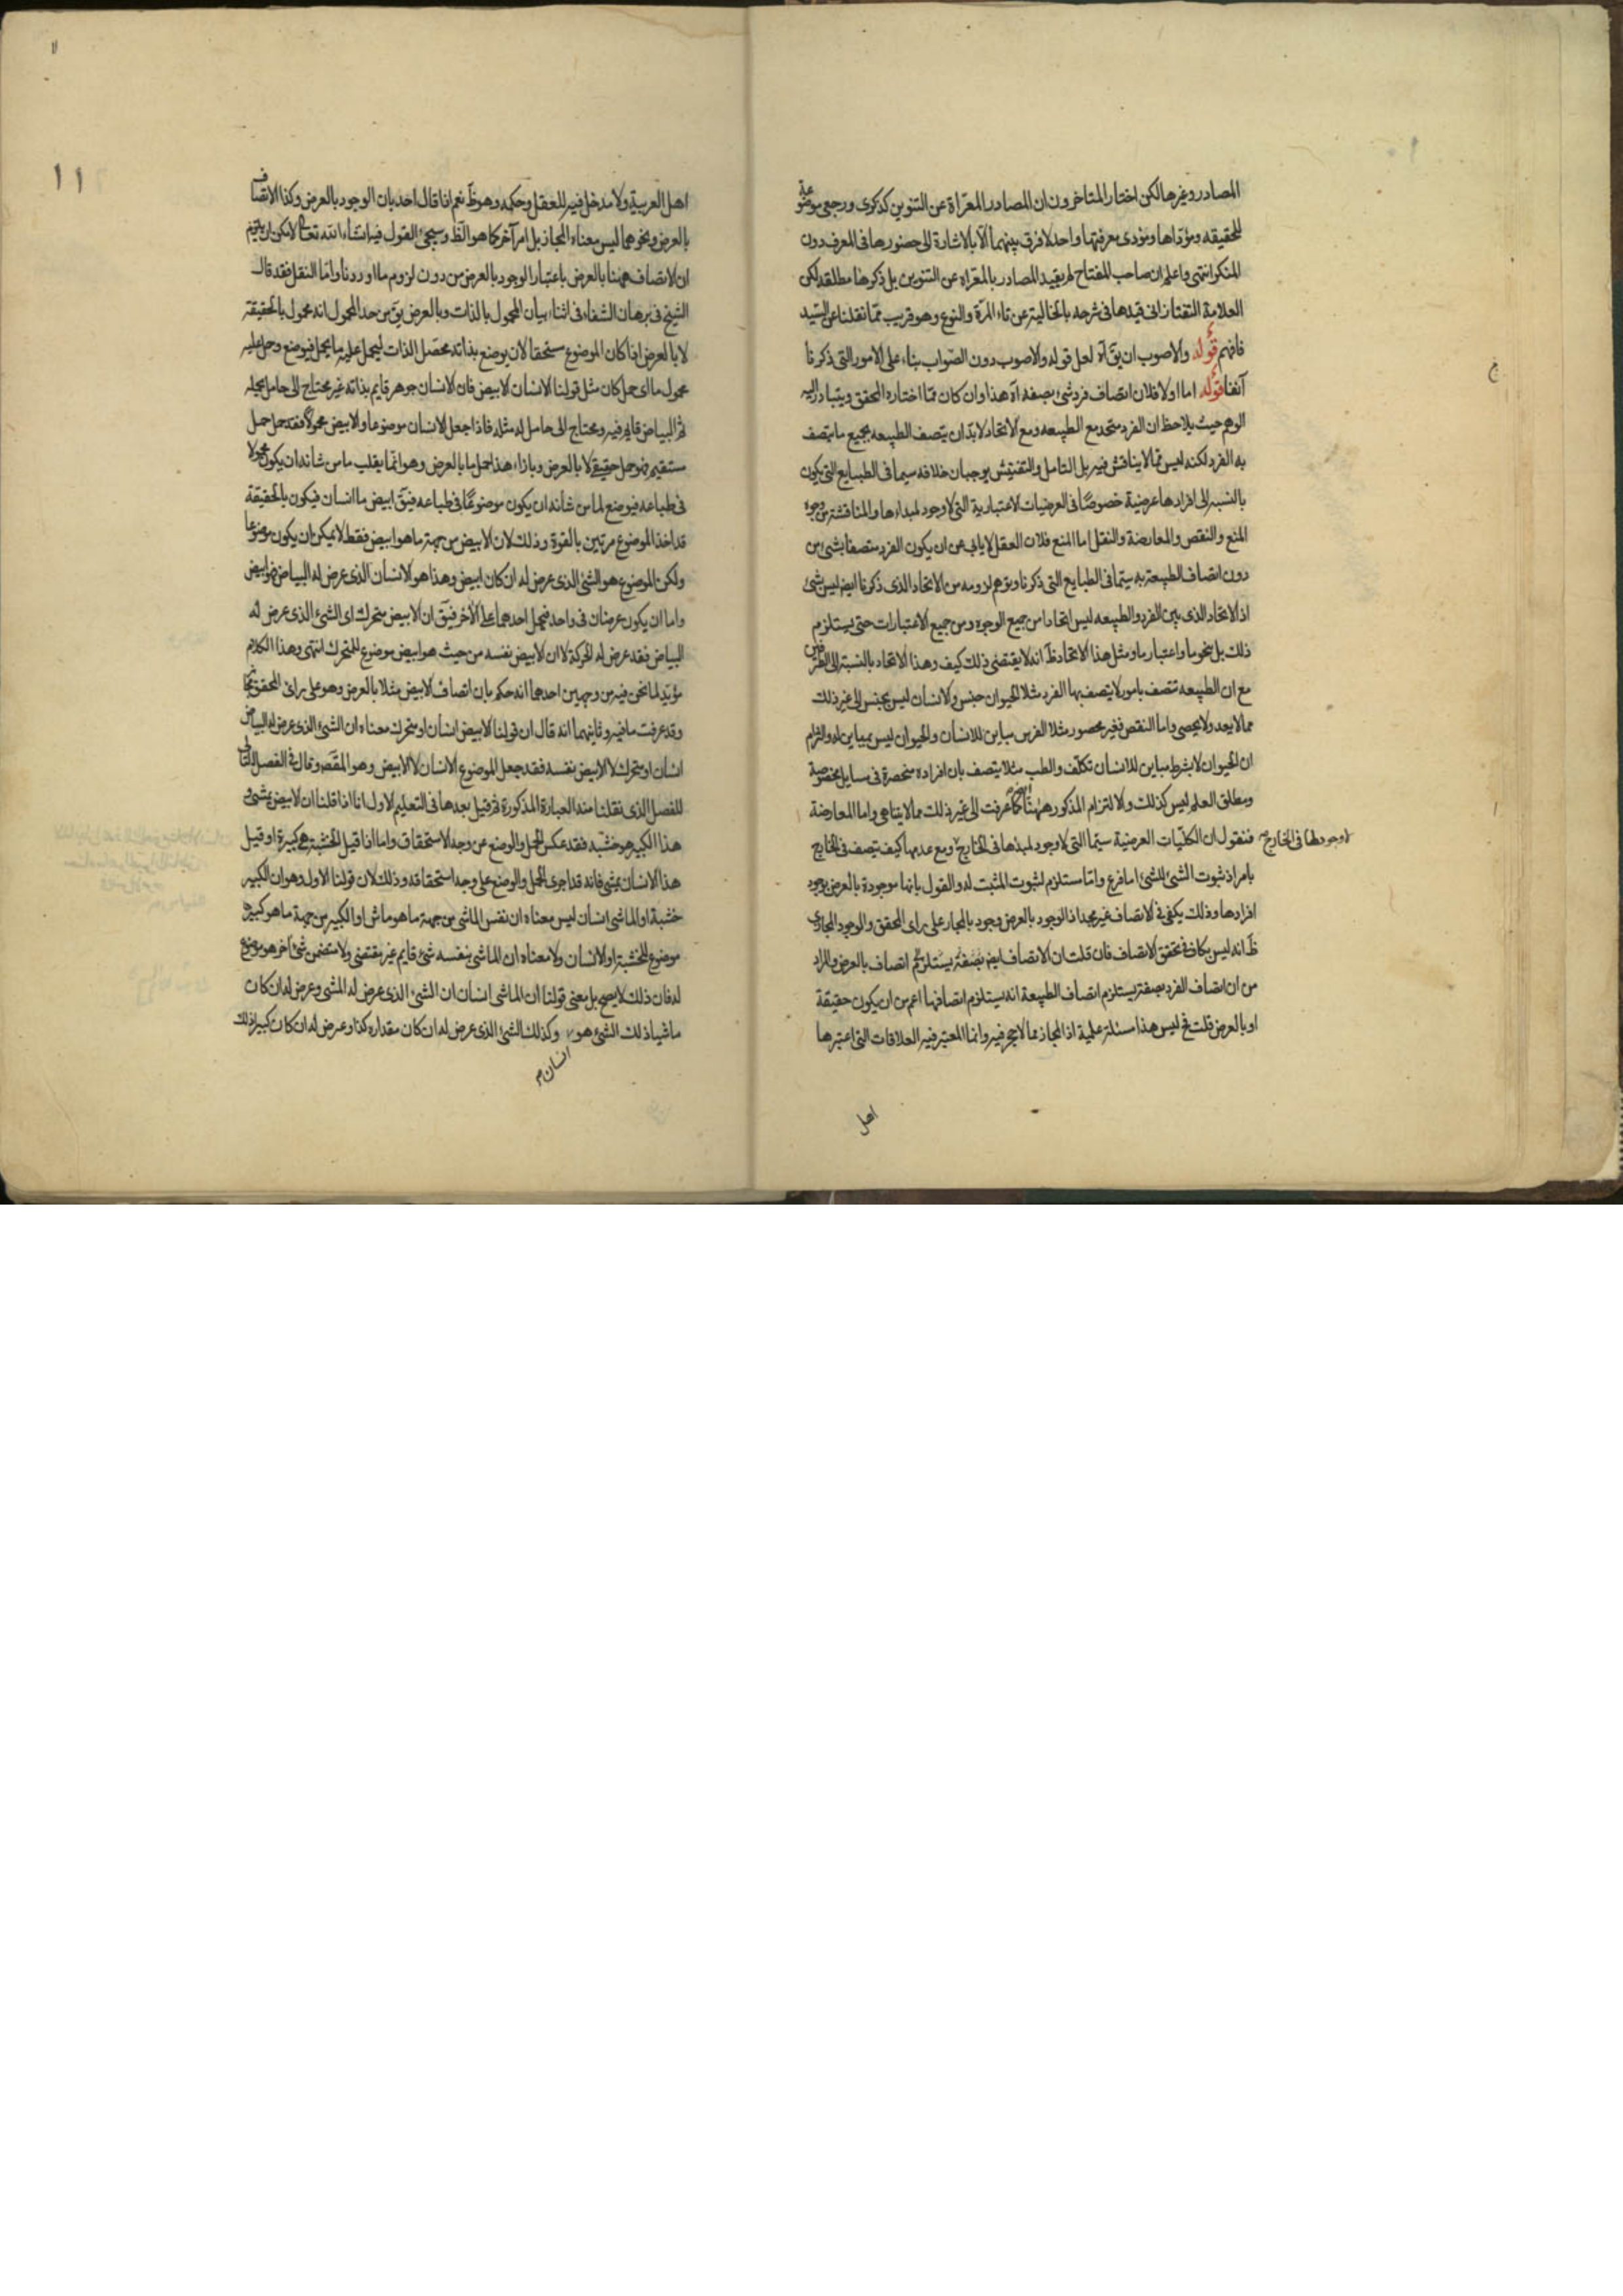 المصادر وغيرها لكن اختار المتاخرون ان المصادر المعراة عن التنوين كذكرى ورجعى موضوعة
للحقيقه ومؤداها ومؤدى معرفتها واحد لا فرق بينهما الا بالاشارة الى حضورها فى المعرف دون
المنكر انتهى واعلم ان صاحب المفتاح لم يقيد المصادر بالمعراة عن التنوين بل ذكرها مطلقه لكن
العلامة التفتازانى قيدها فى شرحه بالخالية عن تاء المرة والنوع وهو قريب مما نقلنا عن السيد
فافهم قوله والاصوب ان يق آه لعل قوله والاصوب دون الصواب بناء على الامور التى ذكرنا
آنفا قوله اما اولا فلان اتصاف فرد شىء بصفه آه هذا وان كان مما اختاره المحقق ويتبادر اليه
الوهم حيث يلاحظ ان الفرد متحد مع الطبيعه ومع الاتحاد لابد ان يتصف الطبيعه بجميع ما يتصف
به الفرد لكنه ليس مما لا يناقش فيه بل التامل والتفتيش يوجبان خلافه سيما فى الطبايع التى يكون
بالنسبه الى افرادها عرضية خصوصا فى العرضيات الاعتبارية التى لا وجود لمبداءها والمناقشة من وجوه
المنع والنقض والمعارضة والنقل اما المنع فلان العقل لا يابى عن ان يكون الفرد متصفا بشىء من
دون اتصاف الطبيعة به سيما فى الطبايع التى ذكرنا وتوهم لزومه من الاتحاد الذى ذكرنا ايض ليس بشىء
اذ الاتحاد الذى بين الفرد والطبيعه ليس اتحادا من جميع الوجوه ومن جميع الاعتبارات حتى يستلزم
ذلك بل بنحو ما واعتبار ما ومثل هذا الاتحاد ظ انه لا يقتضى ذلك كيف وهذا الاتحاد بالنسبة الى الطرفين
مع ان الطبيعه تتصف بامور لا يتصف بها الفرد مثلا الحيوان جنس والانسان ليس بجنس الى غير ذلك
مما لا يعد ولا يحصى واما النقض فغير محصور مثلا الفرس مباين للانسان والحيوان ليس بمباين له والتزام
ان الحيوان لا بشرط مباين للانسان تكلف والطب مثلا يتصف بان افراده منحصرة فى مسايل مخصوصة
ومطلق العلم ليس كذلك والالتزام المذكور ههنا ايضا كما عرفت الى غير ذلك مما لا يتناهى واما المعارضة
فنقول ان الكليات العرضية سيما التى لا وجود لمبدئها فى الخارج لا وجود لها فى الخارج ومع عدمها كيف تتصف فى الخارج
بامر اذ ثبوت الشئ للشئ اما فرع واما مستلزم لثبوت المثبت له والقول بانها موجودة بالعرض بوجود
افرادها وذلك يكفى فى الاتصاف غير مجد اذ الوجود بالعرض وجود بالمجاز على راى المحقق والوجود المجازى
ظ انه ليس بكاف فى تحقق الاتصاف فان قلت ان الاتصاف ايض بصفة يستلزم اتصاف بالعرض والمراد
من ان اتصاف الفرد بصفة يستلزم اتصاف الطبيعة انه يستلزم اتصافها اعم من ان يكون حقيقة
او بالعرض قلت فح ليس هذا مسئلة علمية اذ المجاز مما لا حجر فيه وانما المعتبر فيه العلاقات التى اعتبرها
اهل
١١
اهل العربية ولا مدخل فيه للعقل وحكمه وهو ظ نعم اذا قال احد بان الوجود بالعرض وكذا الاتصاف
بالعرض ونحوهما ليس معناه المجاز بل امر آخر كما هو الظ وسيجئ القول فيه انشاء الله تعالى لامكن ان يقيم
ان الاتصاف ههنا بالعرض باعتبار الوجود بالعرض من دون لزوم ما اوردنا واما النقل فقد قال
الشيخ فى برهان الشفاء فى اثناء بيان المحمول بالذات وبالعرض يق من حد المحمول انه محمول بالحقيقة
لا بالعرض اذا كان الموضوع مستحقا لان يوضع بذاته محصل الذات ليحمل عليه ما يحمل فيوضع وحمل عليه
محمول ما اى حمل كان مثل قولنا الانسان الابيض فان الانسان جوهر قايم بذاته غير محتاج الى حامل يحمله
ثم البياض قايم فيه ومحتاج الى حامل له مثله فاذا جعل الانسان موضوعا والابيض محمولا فقد حمل حمل
مستقيم فهو حمل حقيقى لا بالعرض وبازاء هذا حمل ما بالعرض وهو انما يقلب ما من شانه ان يكون محمولا
فى طباعه فيوضع لما من شانه ان يكون موضوعا فى طباعه فيق ابيض ما انسان فيكون بالحقيقة
قد اخذ الموضوع مرتين بالقوة وذلك لان الابيض من جهة ما هو ابيض فقط لا يمكن ان يكون موضوعا
ولكن الموضوع هو الشئ الذى عرض له ان كان ابيض وهذا هو الانسان الذى عرض له البياض فهو ابيض
واما ان يكون عرضان فى واحد فيحمل احدهما على الاخر فيق ان الابيض متحرك اى الشئ الذى عرض له
البياض فقد عرض له الحركة لا ان الابيض نفسه من حيث هو ابيض موضوع للمتحرك انتهى وهذا الكلام
مؤيد لما نحن فيه من وجهين احدهما انه حكم بان اتصاف الابيض مثلا بالعرض وهو على راى المحقق مجاز
وقد عرفت ما فيه وثانيهما انه قال ان قولنا الابيض انسان او متحرك معناه ان الشئ الذى عرض له البياض
انسان او متحرك لا الابيض نفسه فقد جعل الموضوع الانسان لا الابيض وهو المقصود وقال فى الفصل التالى
للفصل الذى نقلنا منه العبارة المذكورة ثم قيل بعدها فى التعليم الاول انا اذا قلنا ان الابيض يمشى و
هذا الكبير هو خشبه فقد عكس الحمل والوضع عن وجه الاستحقاق واما اذا قيل الخشبة هى كبيرة او قيل
هذا الانسان يمشى فانه قد اجرى الحمل والوضع على وجه استحقاقه وذلك لان قولنا الاول وهو ان الكبير
خشبة او الماشى انسان ليس معناه ان نفس الماشى من جهة ما هو ماش او الكبير من جهة ما هو كبير هو
موضوع للخشبة او الانسان ولا معناه ان الماشى بنفسه شئ قايم غير مقتضى ولا متضمن شئ آخر هو موضوع
له فان ذلك لا يصح بل معنى قولنا ان الماشى انسان ان الشئ الذى عرض له المشى وعرض له ان كان
ماشيا ذلك الشئ هو انسان وكذلك الشئ الذى عرض له ان كان مقداره كذا وعرض له ان كان كبيرا ذلك